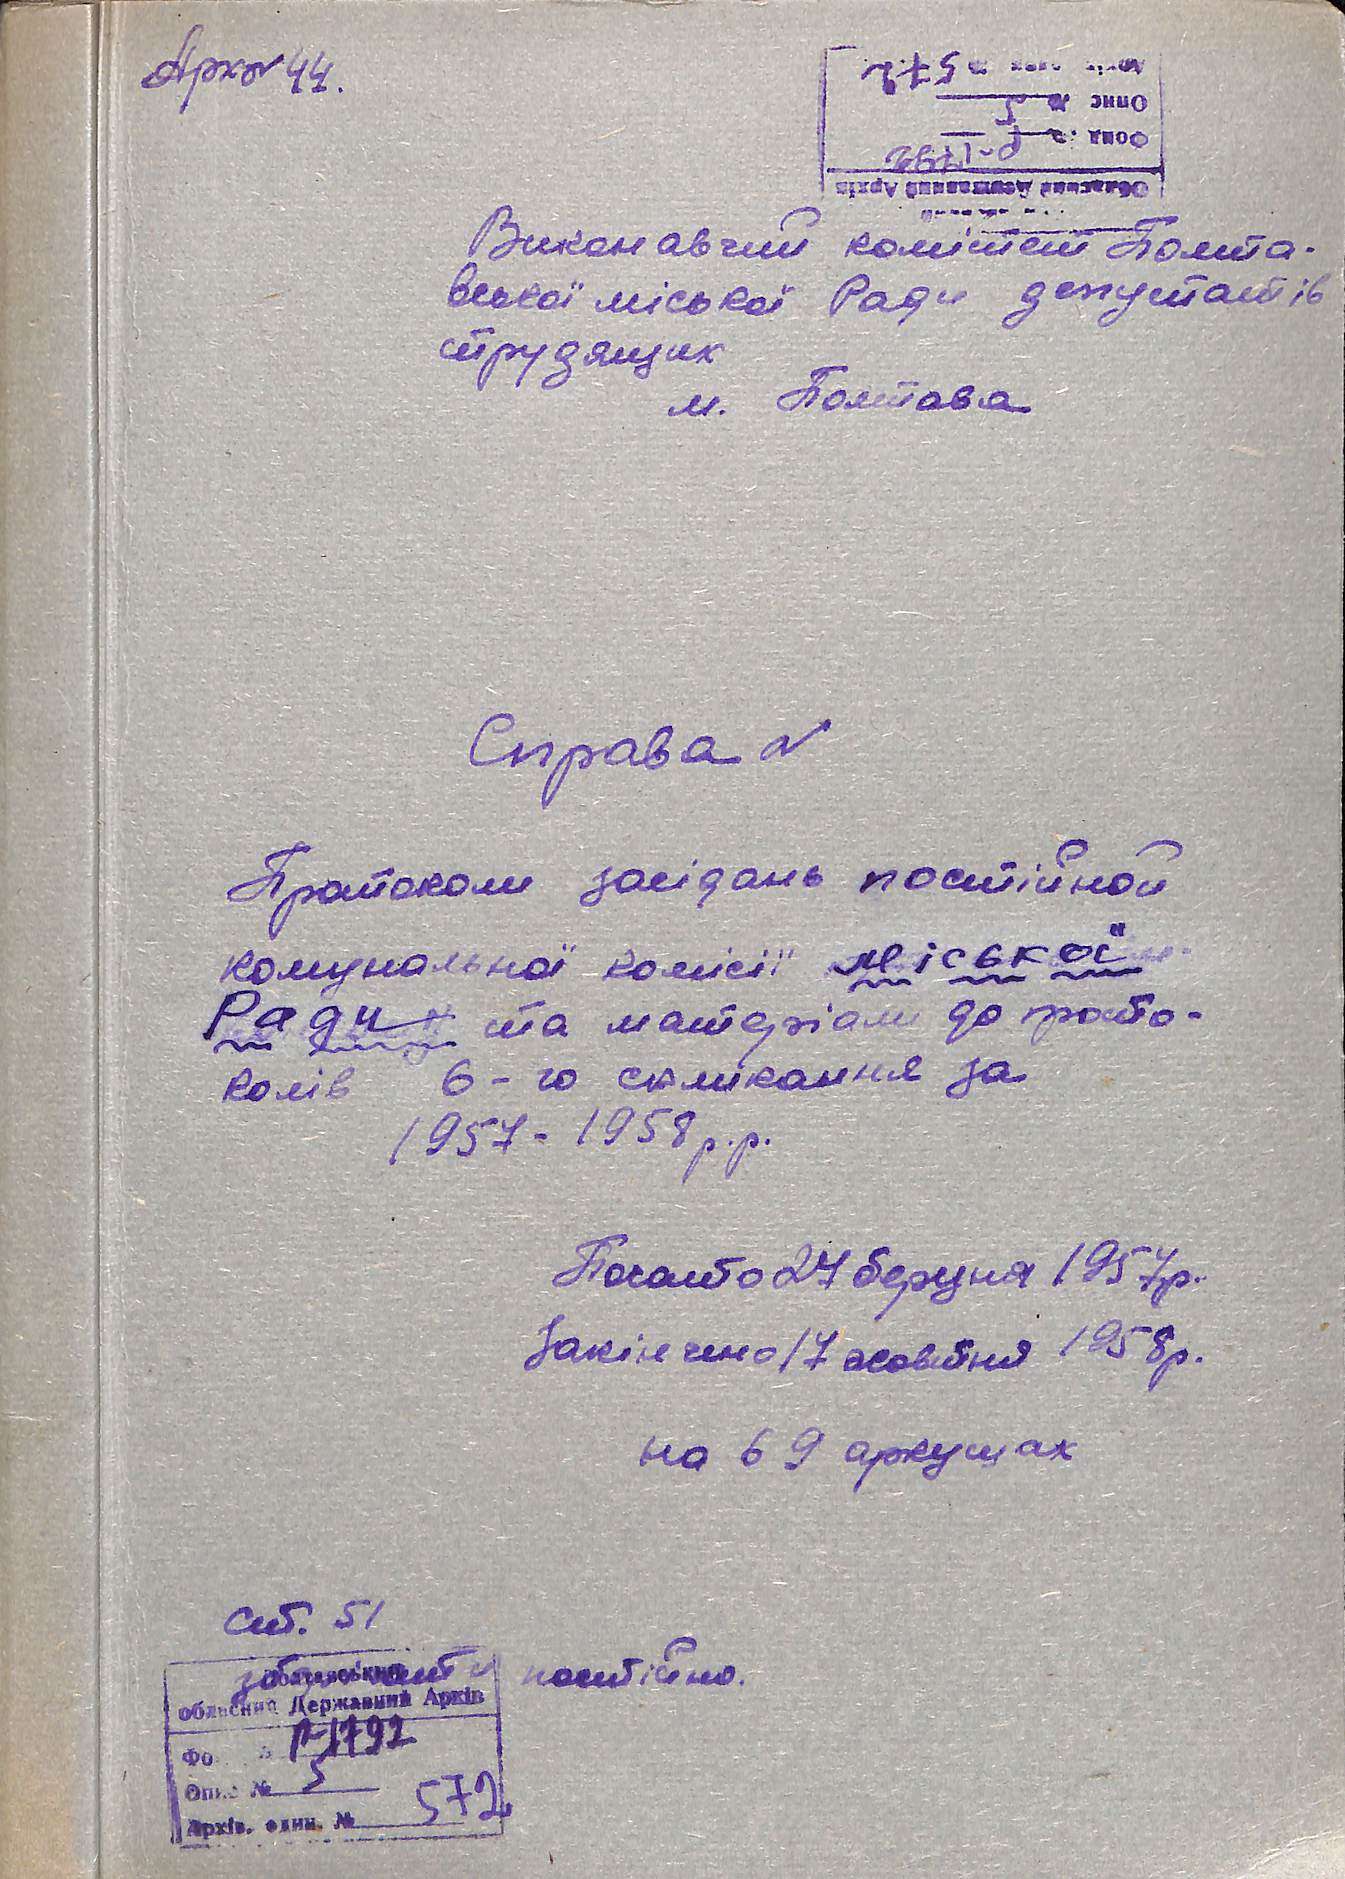 Арк № 44.
Архів. один. № 572
Опис № 5
Фонд № Р-1792
Обласний Державний Архів
Виконавчий комітет Полта-
вської міської Ради депутатів
трудящих
м. Полтава
Справа №
Протоколи засідань постійной
комунальної комісії міської
Ради та матеріали до прото-
колів 6-го скликання за
1957-1958 р.р.
Почато 27 березня 1957р.
Закінчено 17 жовтня 1958р.
на 69 аркушах
Ст. 51
зберігати постійно.
Полтавський
обласний Державний Архів
Фонд № Р-1792
Опис № 5
Архів. один. № 572